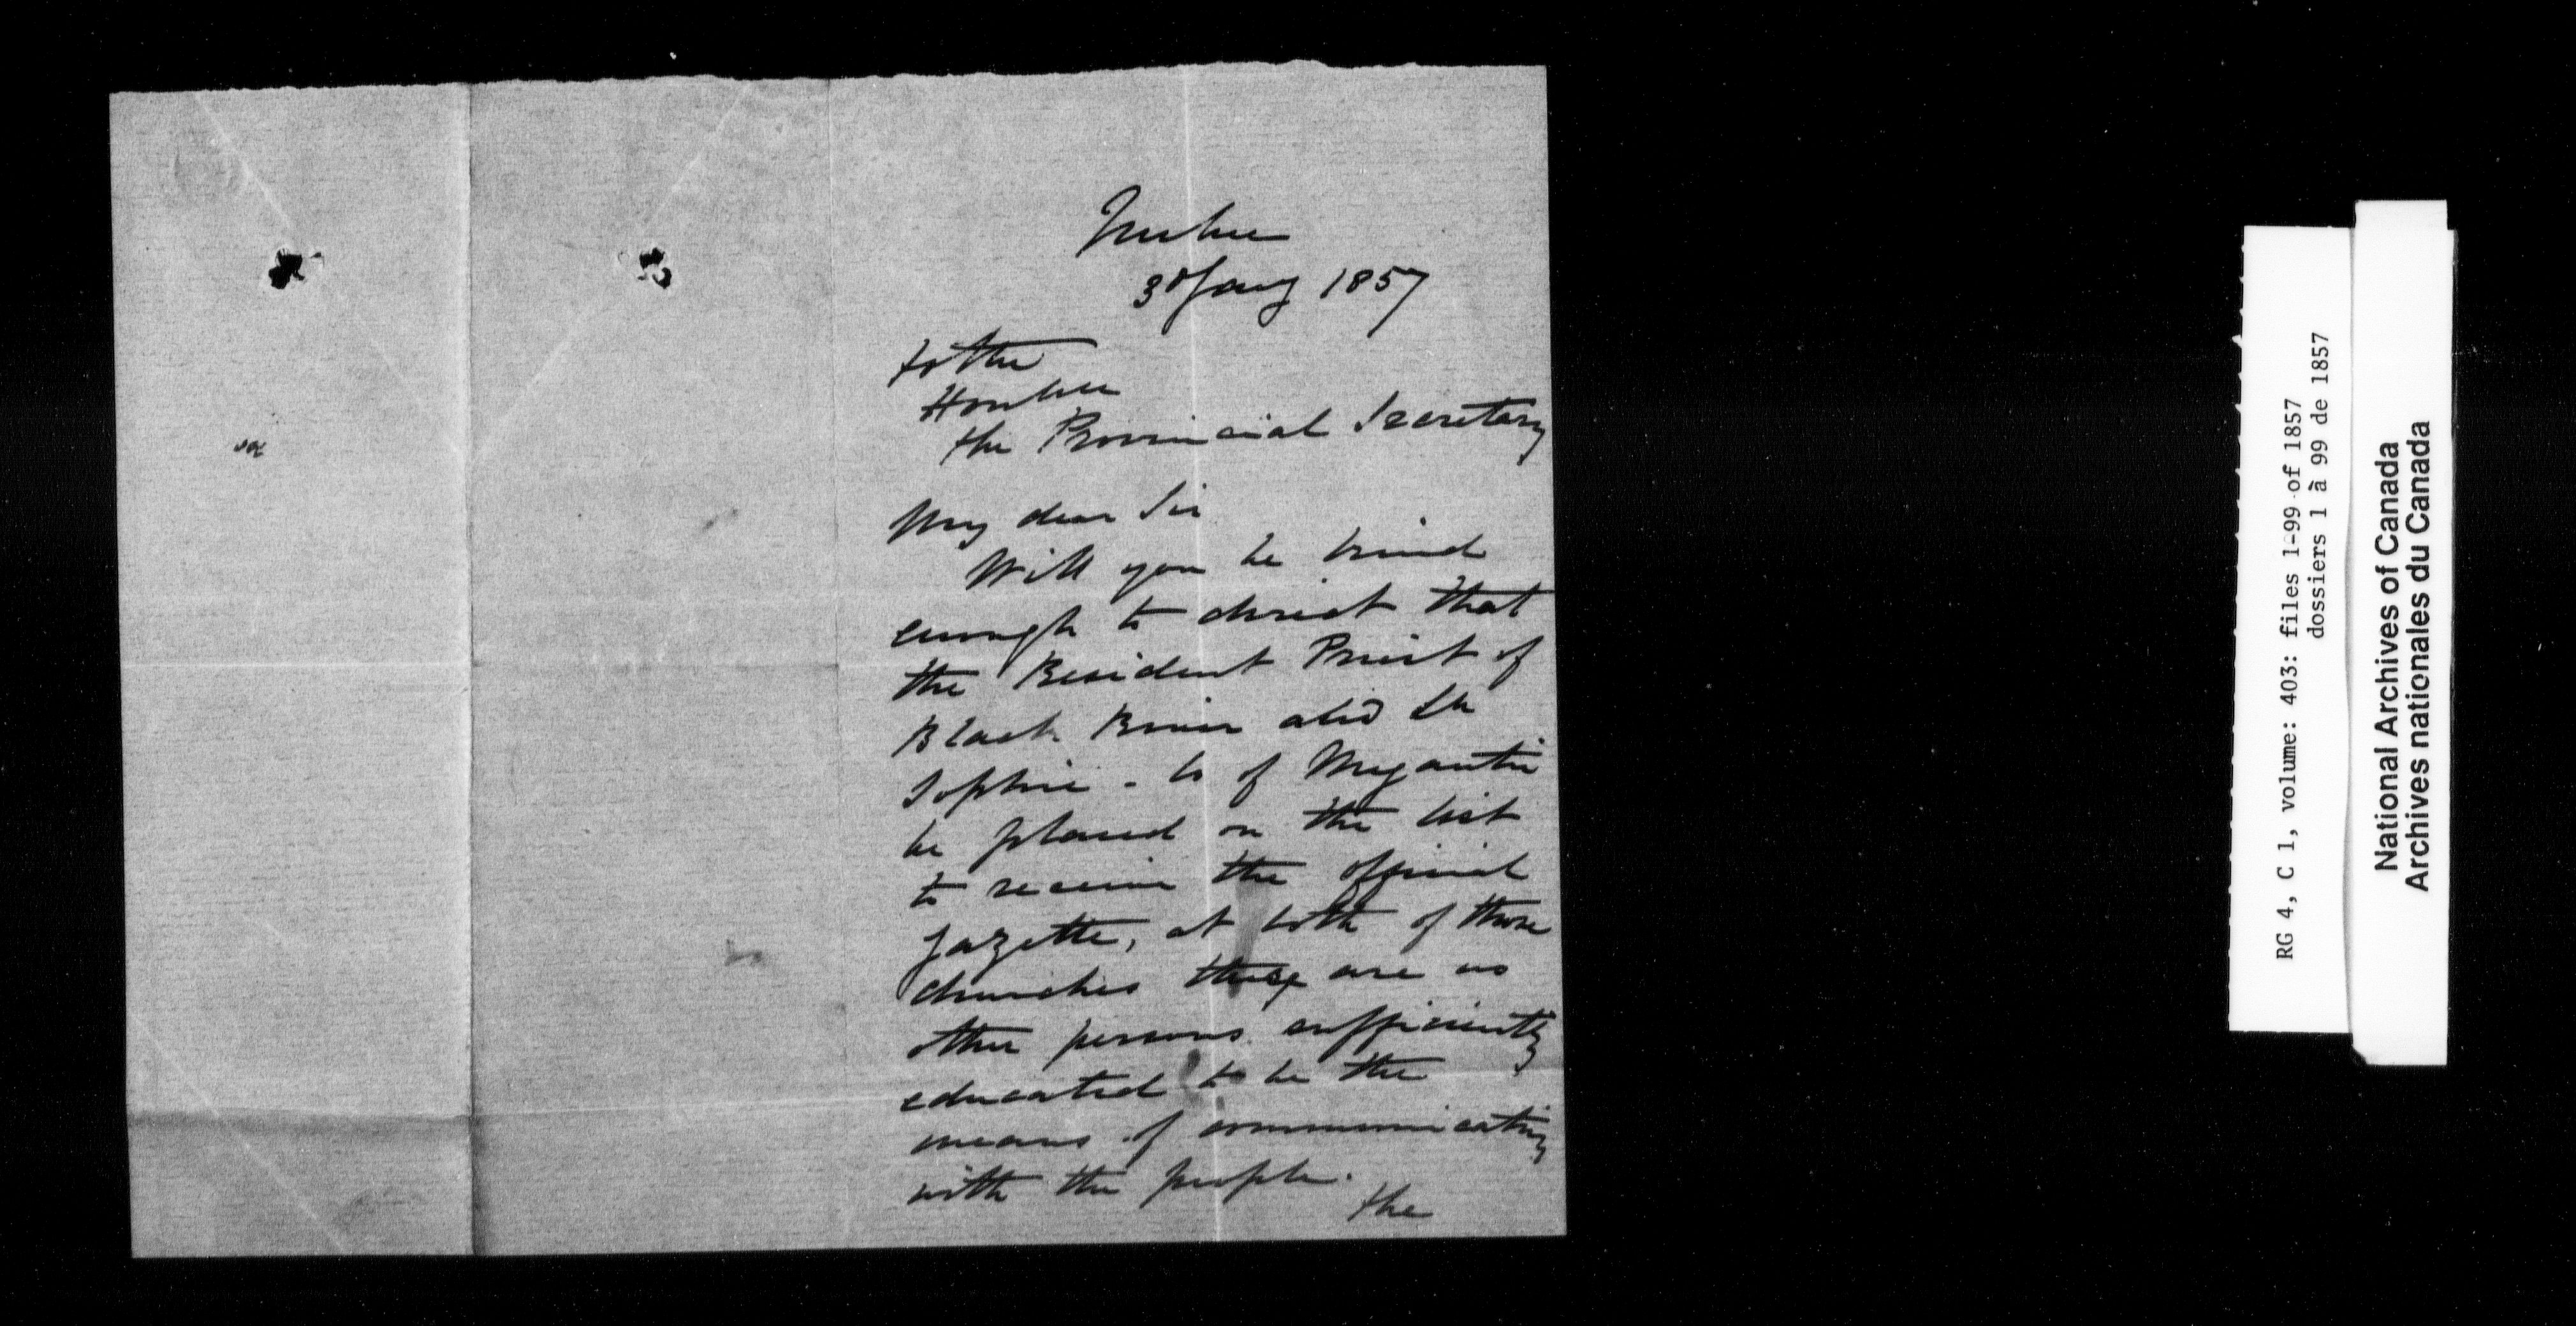 Quebec
3d Jany 1857
To the
Honble
the Provincial Secretary
My dear Sir
Will you be kind
enough to direct that
the Resident Priest of
Black River also St
Sophie - Co of Megantic
be placed on the list
to receive the official
Gazette, at both of those
churches there are no
other persons sufficiently
educated to be the
means of communicating
with the people.
the
RG 4, C 1, volume: 403: files 1-99 of 1857
dossiers 1 à 99 de 1857
National Archives of Canada
Archives nationales du Canada